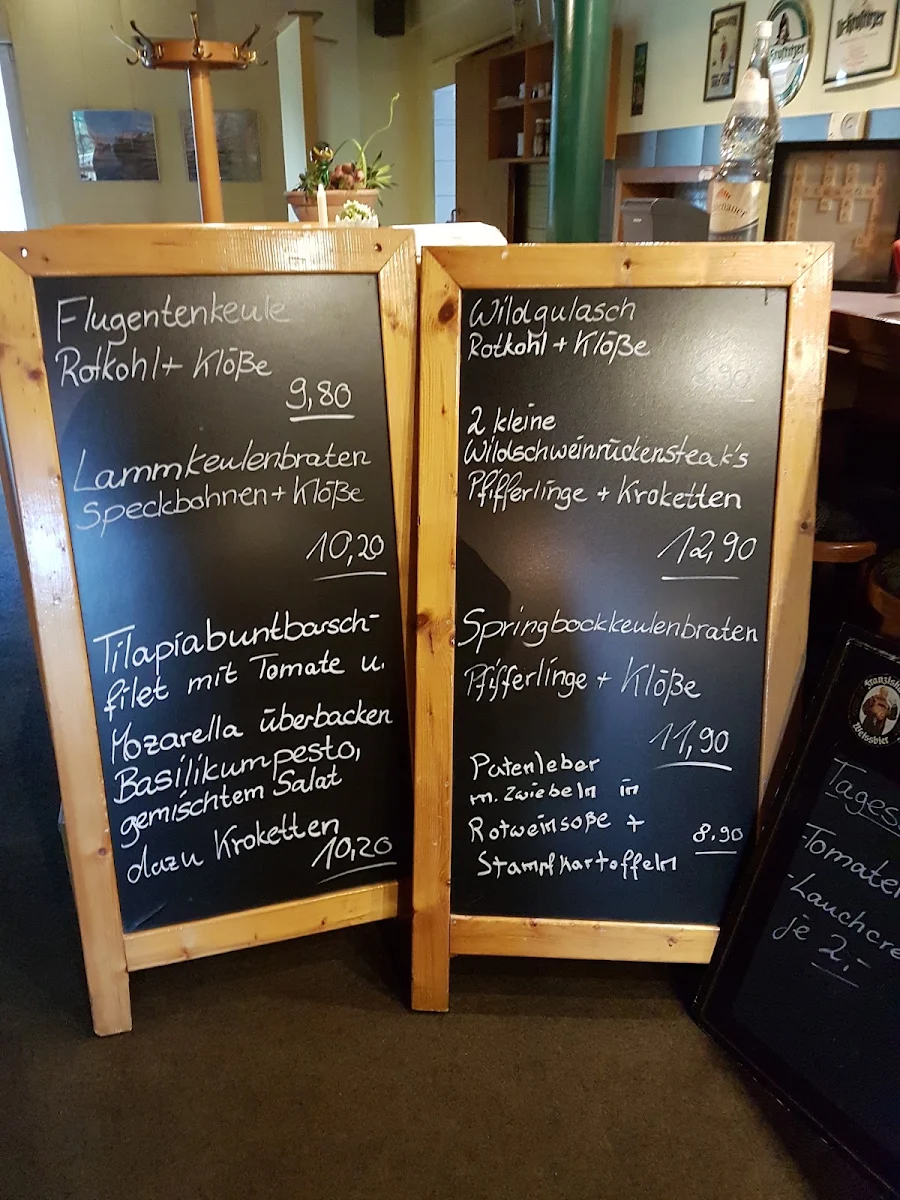 Flugentenkeule
Rotkohl + Klöße
9,80
Lammkeulenbraten
Speckbohnen + Klöße
10,20
Tilapiabuntbarsch-
filet mit Tomate u.
Mozarella überbacken
Basilikumpesto,
gemischtem Salat
dazu Kroketten
10,20
Wildgulasch
Rotkohl + Klöße
8,90
2 kleine
Wildschweinrückensteak's
Pfifferlinge + Kroketten
12,90
Springbockkeulenbraten
Pfifferlinge + Klöße
11,90
Putenleber
m. Zwiebeln in
Rotweinsoße +
8.90
Stampfkartoffeln
Weissbier
Tages
-Tomaten
-Lauchcre
je 2,-